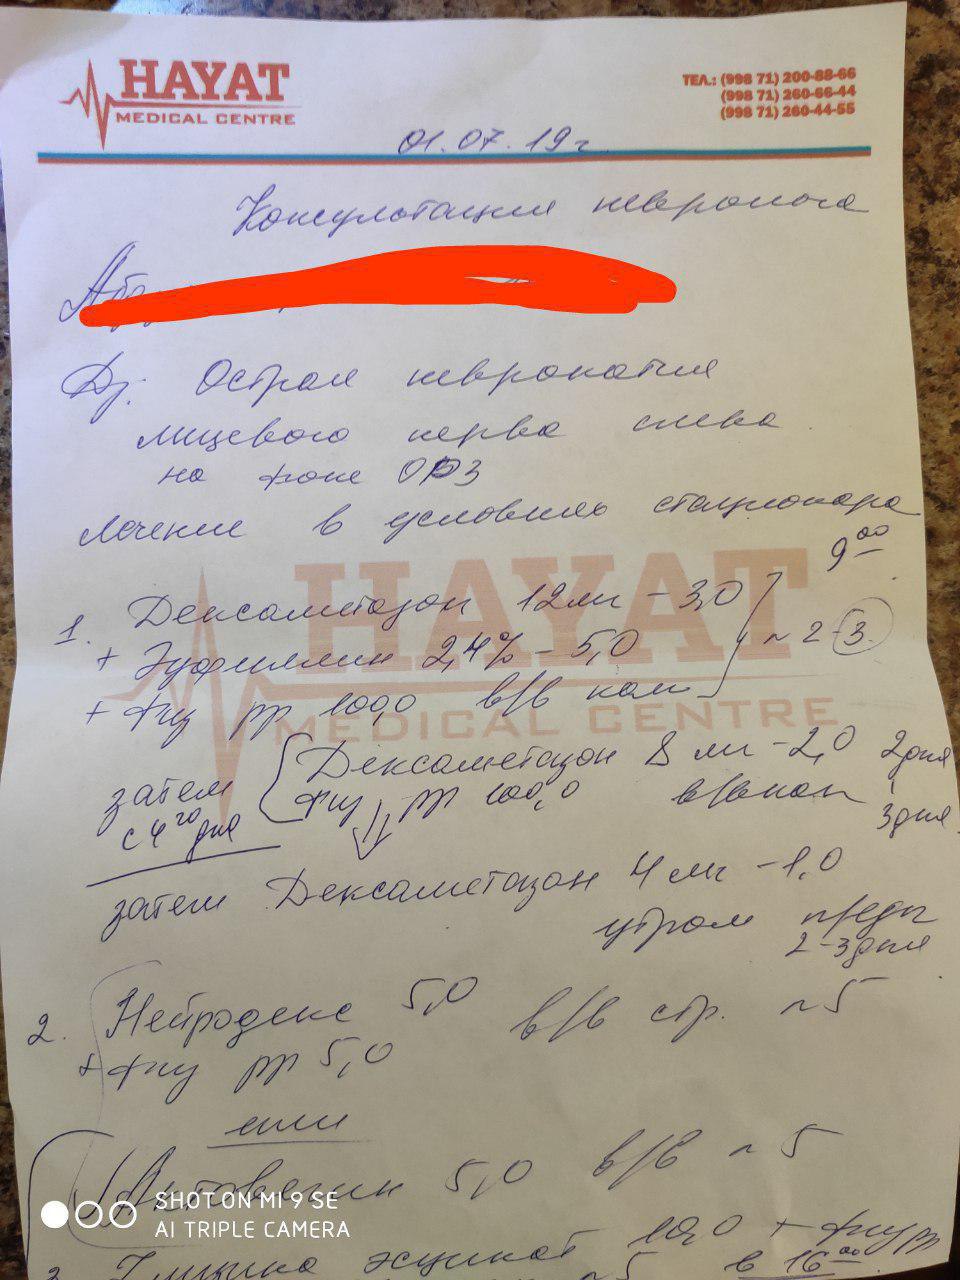 HAYAT
MEDICAL CENTRE
ТЕЛ.: (998 71) 200-88-66
(998 71) 260-66-44
(998 71) 260-44-55
01.07.19 г
Консультация невролога
Дз. Острая невропатия
лицевого нерва слева
на фоне ОРЗ
Лечение в условиях стационара
9 00
1. Дексаметазон 12 мг – 3,0
+ Эуфиллин 2,4% – 5,0
+ физ рр 100,0 в/в кап
N 2-3
HAYAT
MEDICAL CENTRE
затем с 4 го дня
Дексаметазон 8 мг – 2,0 2 дня
физ рр 100,0 в/в кап 3 дня
затем Дексаметазон 4 мг – 1,0
утром
2-3 дня
2. Нейродекс 5,0 в/в стр. N 5
+ физ рр 5,0
или
Актовегин 5,0 в/в N 5
3. эсцинат 10,0 + физ рр
N 5 в 16 00
SHOT ON MI 9 SE
AI TRIPLE CAMERA